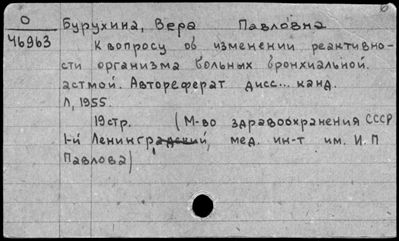 О
46963
Бурухина, Вера Павловна
К вопросу об изменении реактивно-
сти организма больных бронхиальной
астмой. Автореферат дисс... канд.
Л, 1955.
19стр. (М-во здравоохранения СССР
1-й Ленинградский, мед. ин-т им. И.П
Павлова)